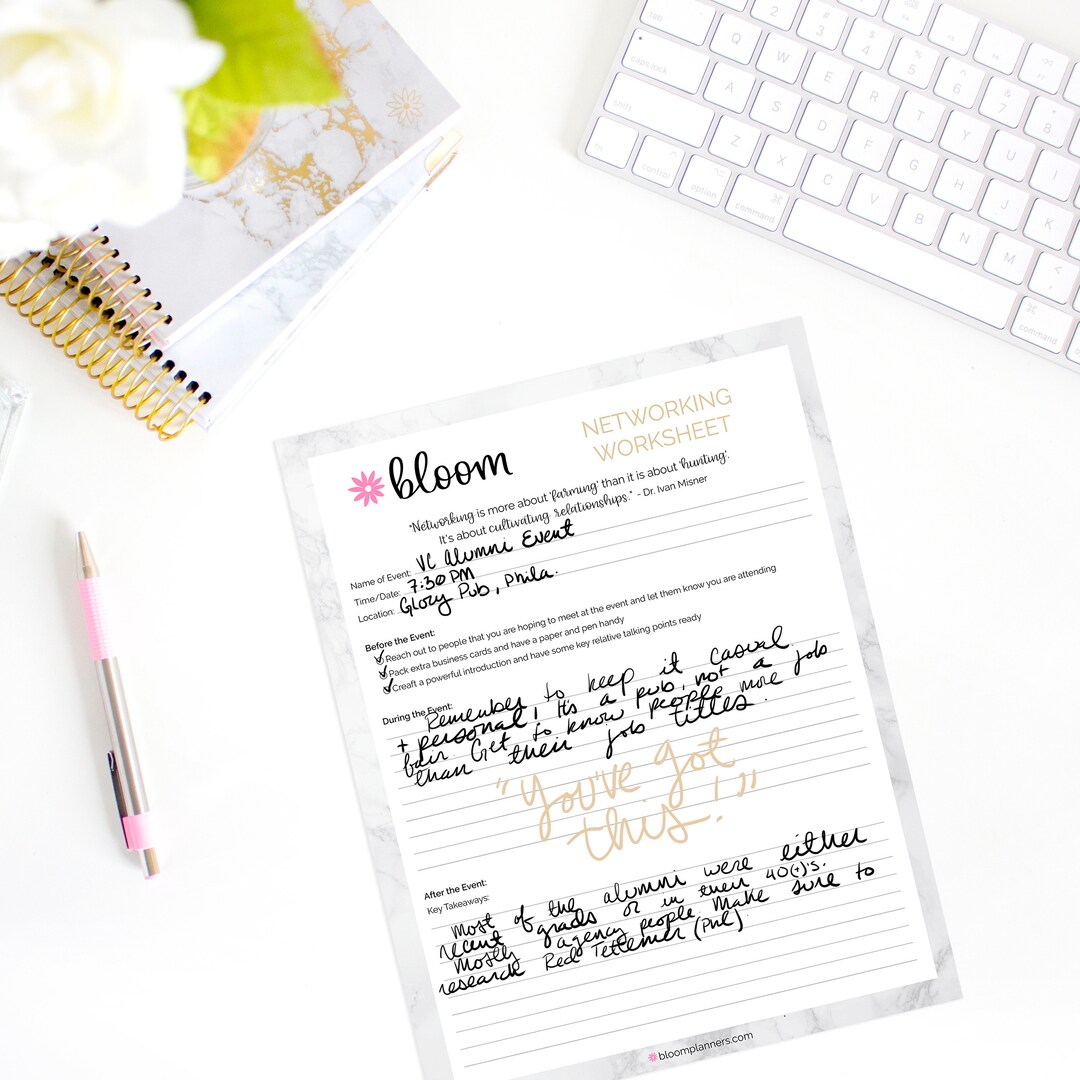 tab Q W E R T Y U I
caps lock A S D F G H J K
shift Z X C V B N M <
fn control option command command
2 # 3 $ 4 % 5 ^ 6 & 7 * 8
NETWORKING
WORKSHEET
bloom
"Networking is more about 'farming' than it is about 'hunting'.
It's about cultivating relationships." - Dr. Ivan Misner
Name of Event: VC Alumni Event
Time/Date: 7:30 PM
Location: Glory Pub, Phila.
Before the Event:
Reach out to people that you are hoping to meet at the event and let them know you are attending
Pack extra business cards and have a paper and pen handy
Craft a powerful introduction and have some key relative talking points ready
During the Event:
Remember to keep it casual
+ personal, it's a pub, not a job
fair. Get to know people more
than their job titles.
"You've got
this!"
After the Event:
Key Takeaways:
Most of the alumni were either
recent grads or in their 40(+)'s.
Mostly agency people. Make sure to
research Red Tettemer (Phl)
bloomplanners.com